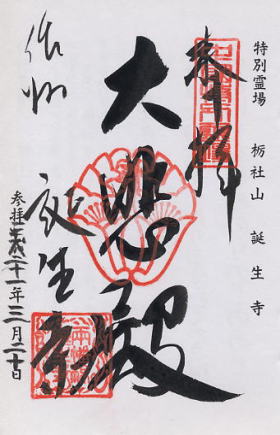 特別霊場 栃社山 誕生寺
奉拝
大恩殿
作州 誕生寺
参拝平成二十一年三月二十日